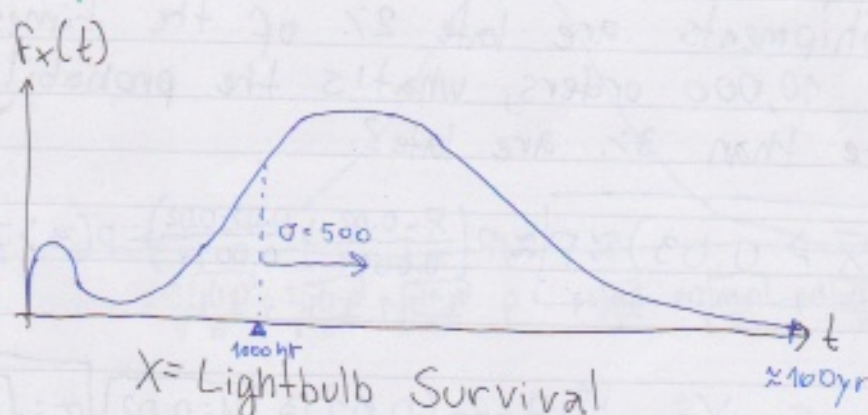 fx(t)
σ=500
t
1000hr
≈100yr
X= Lightbulb Survival